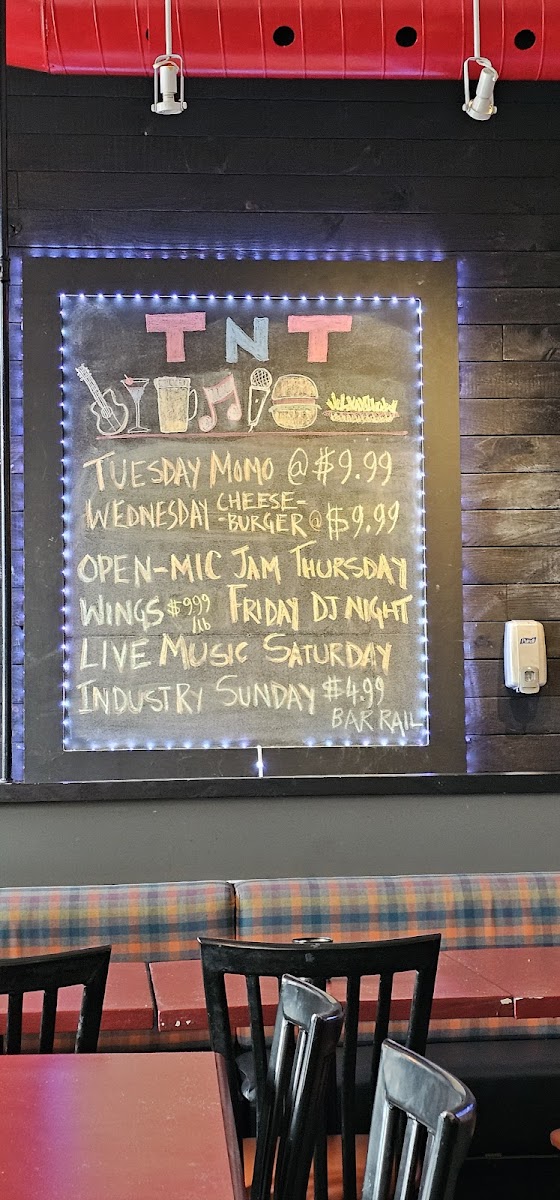 TNT
TUESDAY MOMO @ $9.99
WEDNESDAY CHEESE-
-BURGER @ $9.99
OPEN-MIC JAM THURSDAY
WINGS $9.99 /lb FRIDAY DJ NIGHT
LIVE MUSIC SATURDAY
INDUSTRY SUNDAY $4.99
BAR RAIL